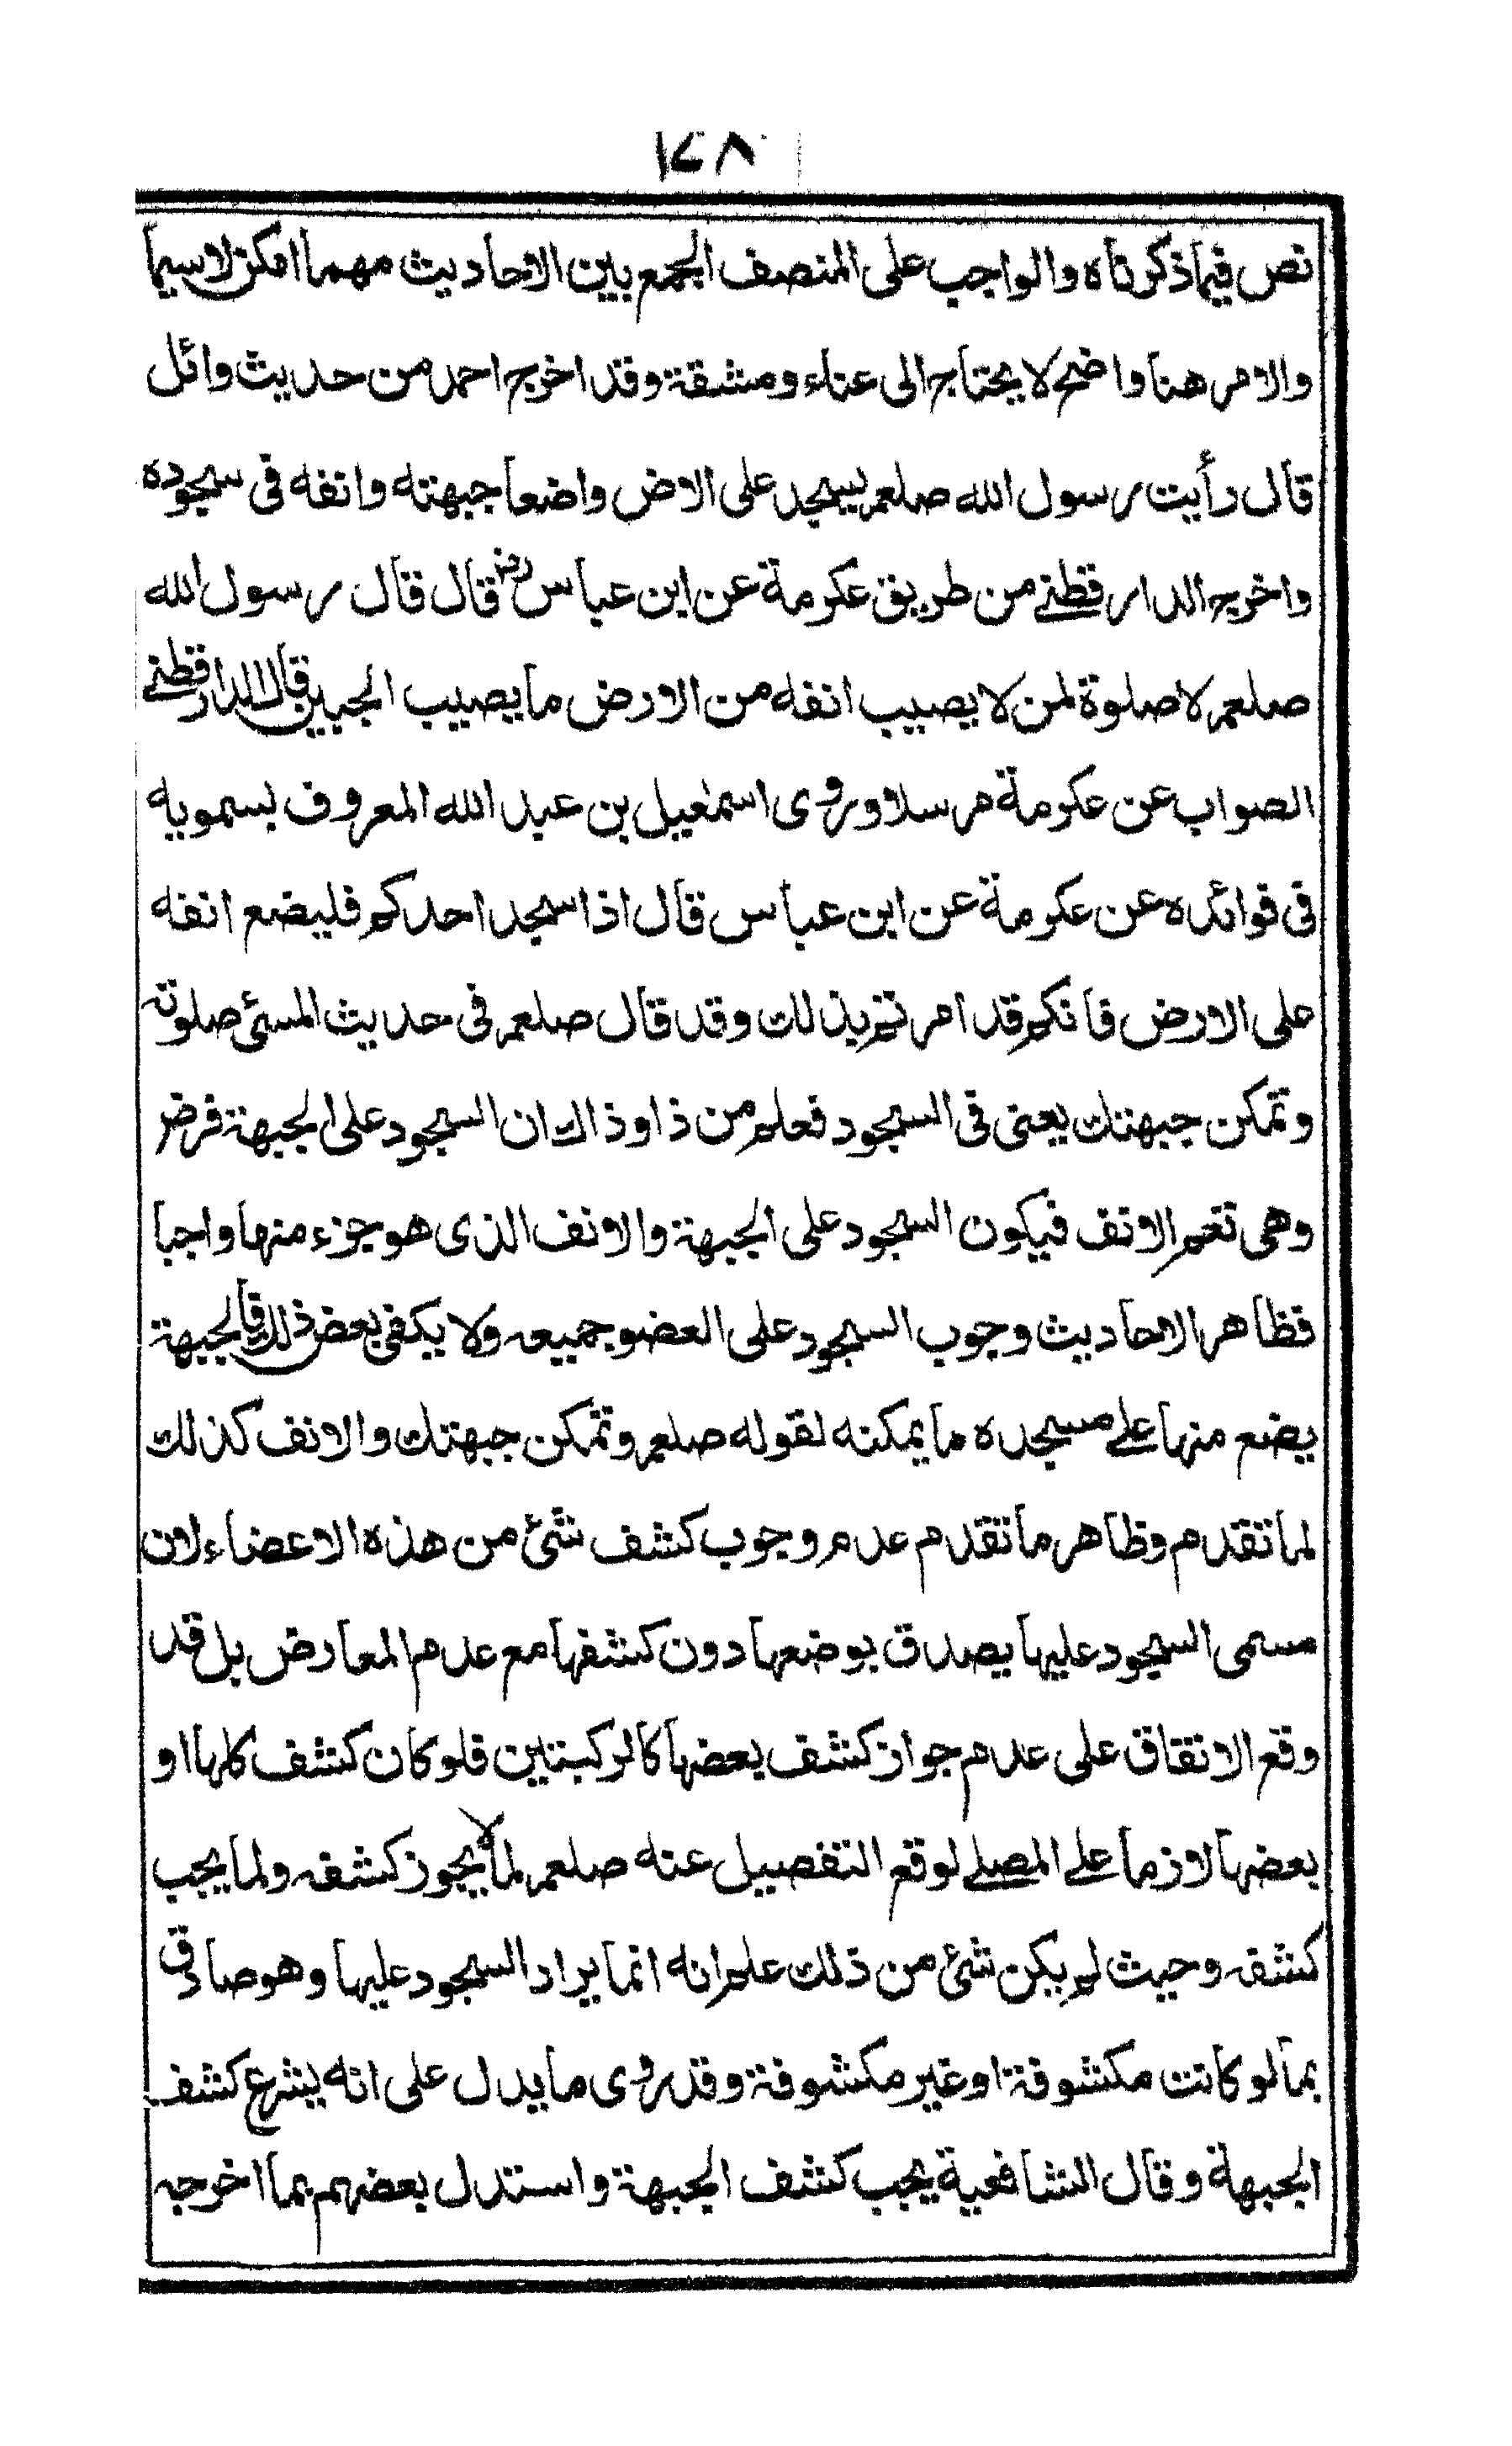 ١٤٨
نص فيما ذكرناه والواجب على المنصف الجمع بين الاحاديث مهما امكن لاسيما
والامر هنا واضح لا يحتاج الى عناء ومشقة وقد اخرج احمد من حديث وائل
قال رأيت رسول الله صلعم يسجد على الارض واضعا جبهته وانفه في سجوده
واخرج الدارقطني من طريق عكرمة عن ابن عباس رض قال قال رسول الله
صلعم لا صلوة لمن لا يصيب انفه من الارض ما يصيب الجبين قال الدارقطني
الصواب عن عكرمة مرسلا وروى اسمعيل بن عبد الله المعروف بسمويه
في فوائده عن عكرمة عن ابن عباس قال اذا سجد احدكم فليضع انفه
على الارض فانكم قد امرتم بذلك وقد قال صلعم في حديث المسئ صلوته
وتمكن جبهتك يعنى في السجود فعلم من ذا وذاك ان السجود على الجبهة فرض
وهى تعم الانف فيكون السجود على الجبهة والانف الذى هو جزء منها واجبا
فظاهر الاحاديث وجوب السجود على العضو جميعه ولا يكفى بعض ذلك فالجبهة
يضع منها على مسجده ما يمكنه لقوله صلعم وتمكن جبهتك والانف كذلك
لما تقدم وظاهر ما تقدم عدم وجوب كشف شئ من هذه الاعضاء لان
مسمى السجود عليها يصدق بوضعها دون كشفها مع عدم المعارض بل قد
وقع الاتفاق على عدم جواز كشف بعضها كالركبتين فلو كان كشف كلها او
بعضها لازما على المصلي لوقع التفصيل عنه صلعم لما لا يجوز كشفه ولما يجب
كشفه وحيث لم يكن شئ من ذلك علم انه انما يراد السجود عليها وهو صادق
بما لو كانت مكشوفة او غير مكشوفة وقد روى ما يدل على انه يشرع كشف
الجبهة وقال الشافعية يجب كشف الجبهة واستدل بعضهم بما اخرجه